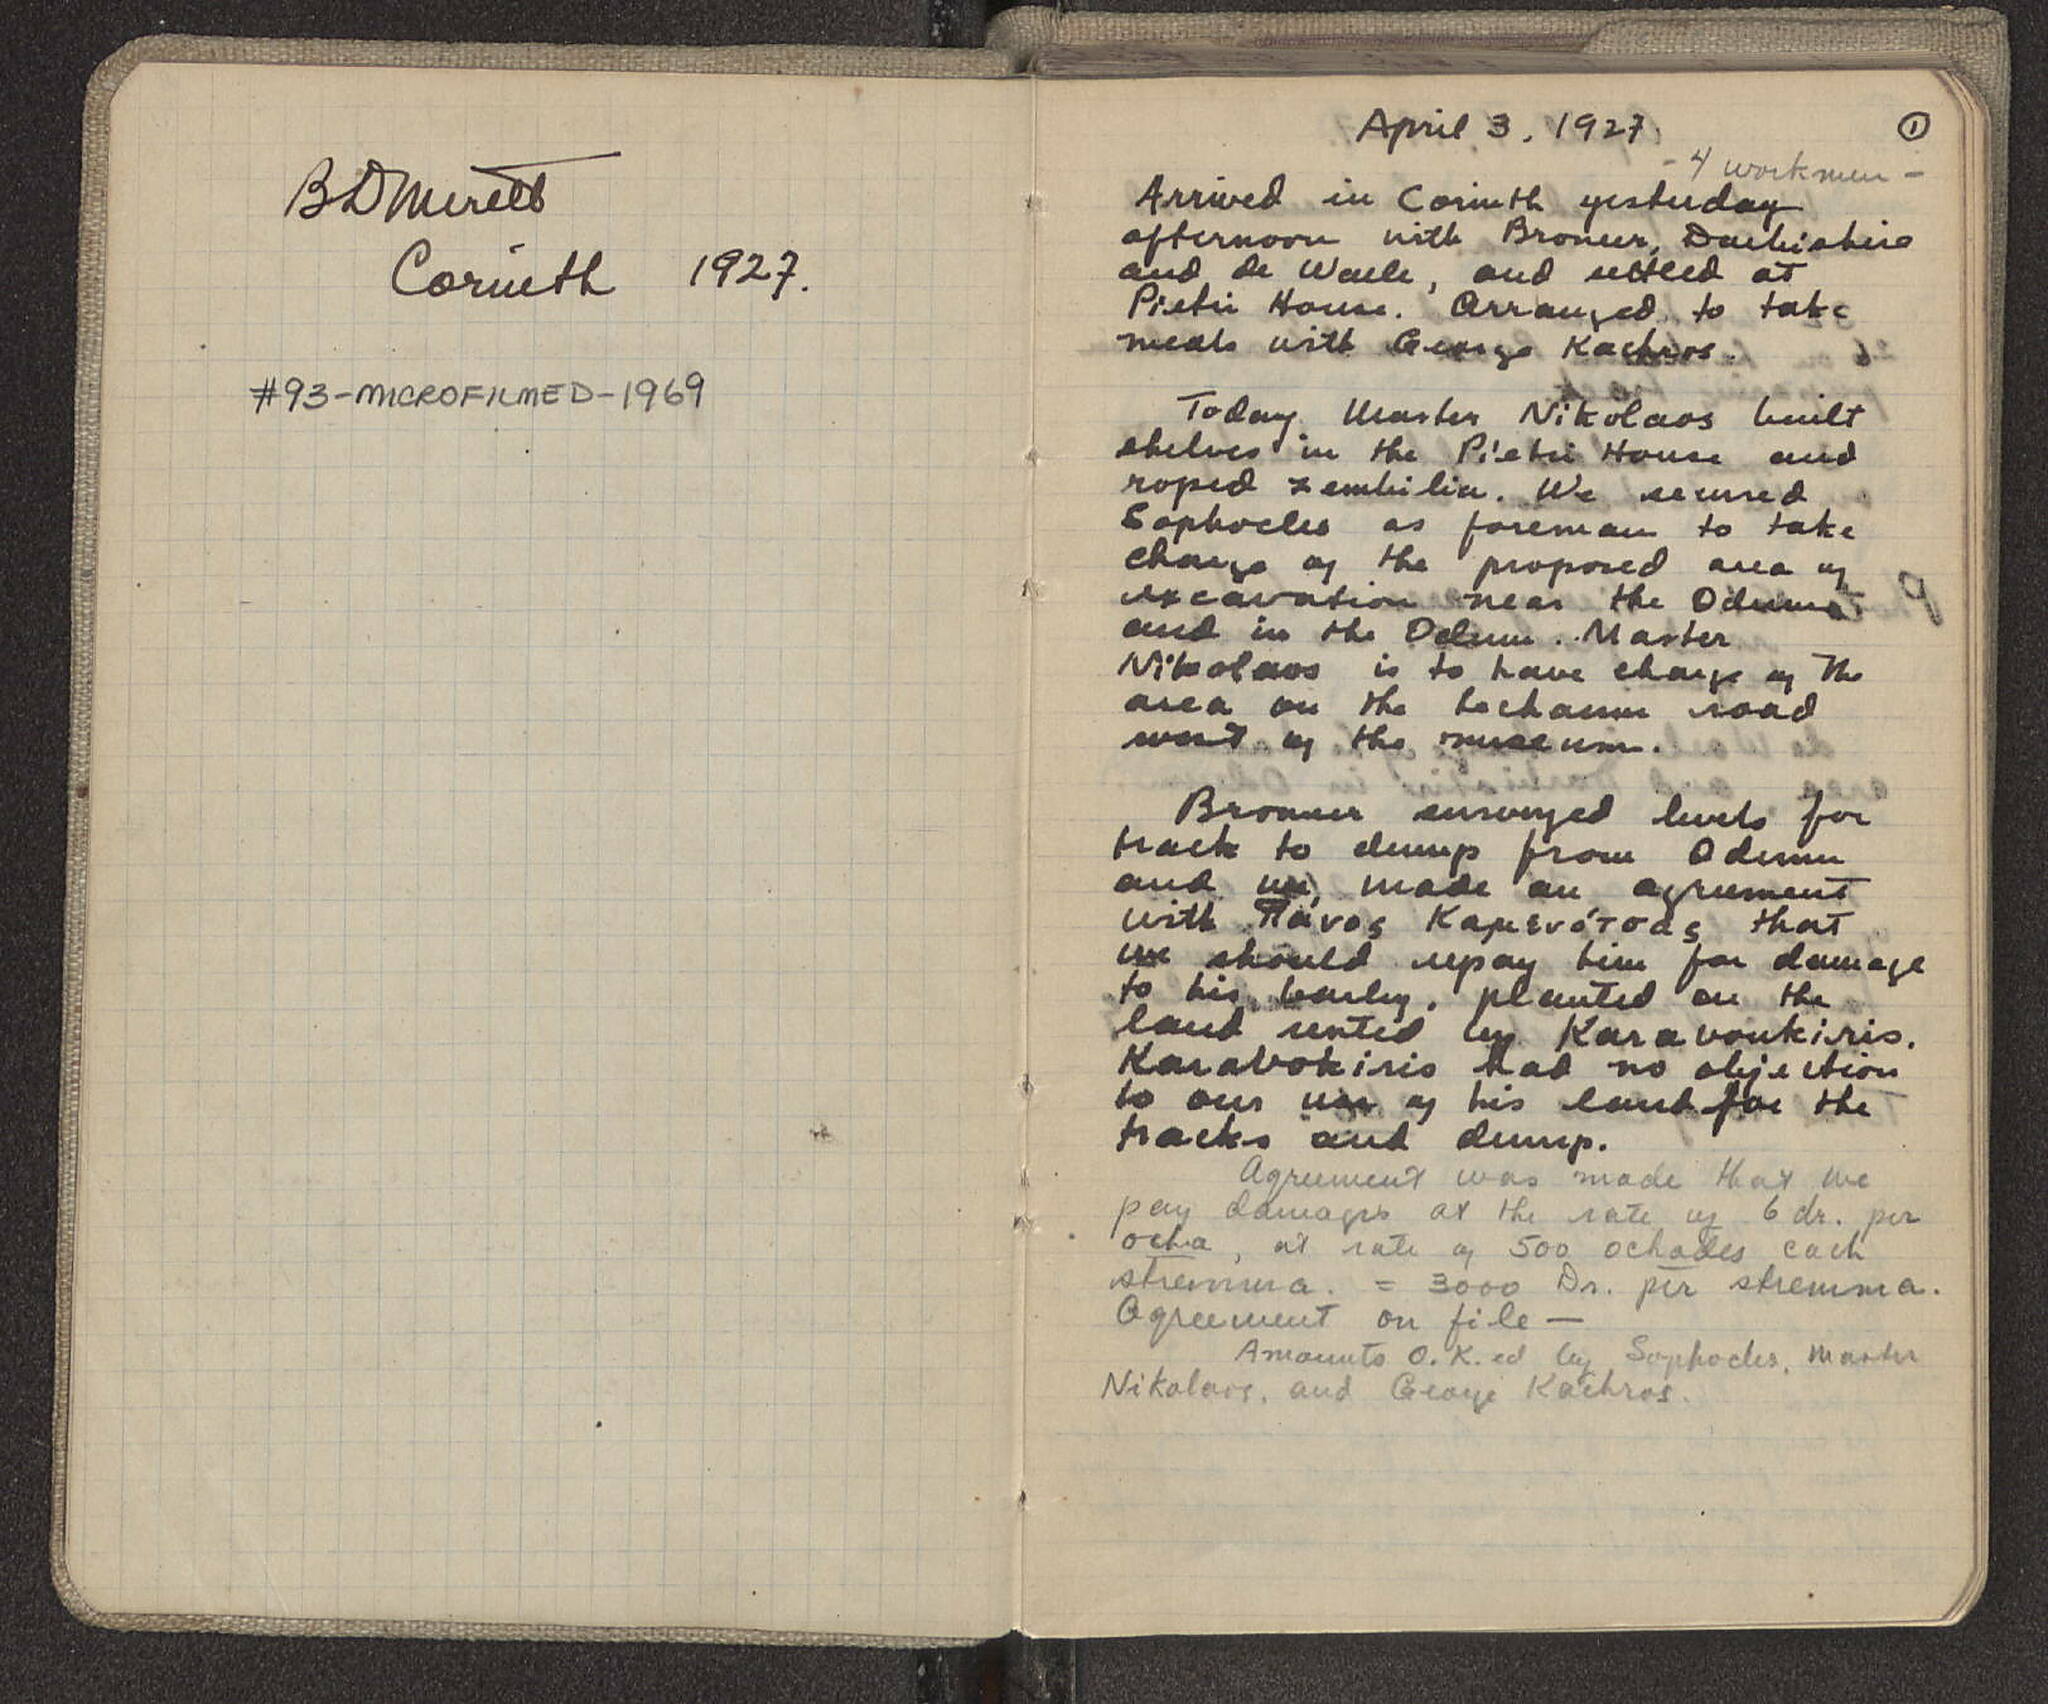 BDMeritt
Corinth 1927.
#93-MICROFILMED-1969
April 3, 1927.
①
- 4 workmen -
Arrived in Corinth yesterday
afternoon with Broneer, Darbishire
and de Waele, and settled at
Pietri House. Arranged to take
meals with George Kachros.
Today Master Nikolaos built
shelves in the Pietri House and
roped zembilia. We secured
Sophocles as foreman to take
charge of the proposed area of
excavation near the Odeum
and in the Odeum. Master
Nikolaos is to have charge of the
area on the Lechaeum road
west of the museum.
Broneer surveyed levels for
track to dump from Odeum
and we, made an agreement
with Πάνος that
we should repay him for damage
to his barley, planted on the
land rented by Karavoukiris.
Karavokiris had no objection
to our use of his land for the
tracks and dump.
Agreement was made that we
pay damages at the rate of 6 dr. per
ocha, at rate of 500 ochades each
stremma. = 3000 Dr. per stremma.
Agreement on file —
Amounts O.K.ed by Sophocles, Master
Nikolaos, and George Kachros.